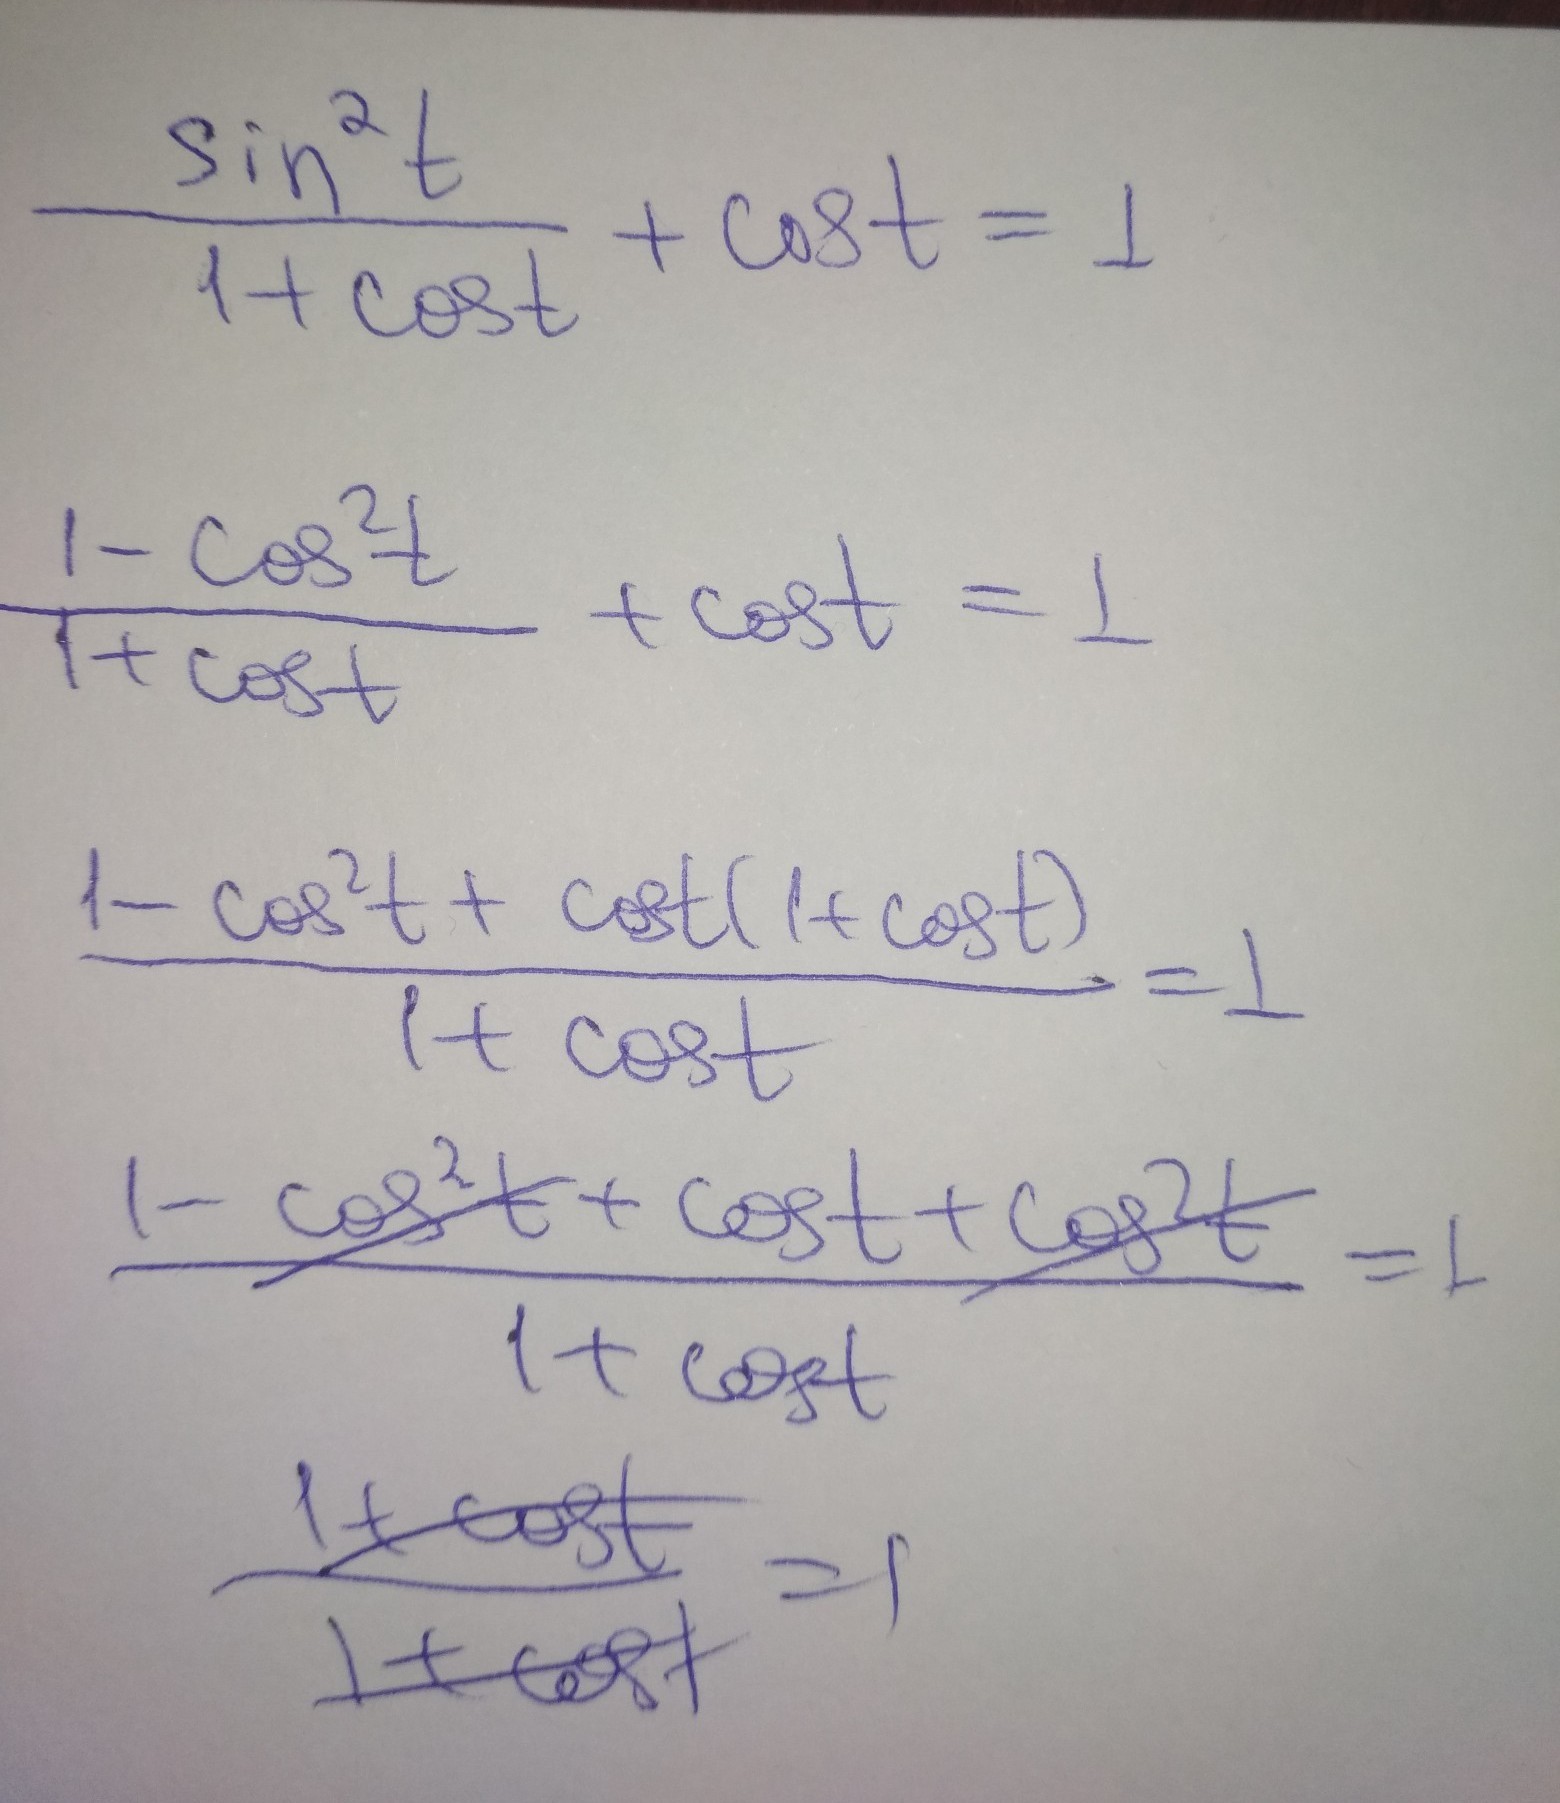 sin²t / 1 + cost + cost = 1
1 - cos²t / 1 + cost + cost = 1
1 - cos²t + cost(1 + cost) / 1 + cost = 1
1 - cos²t + cost + cos²t / 1 + cost = 1
1 + cost / 1 + cost = 1